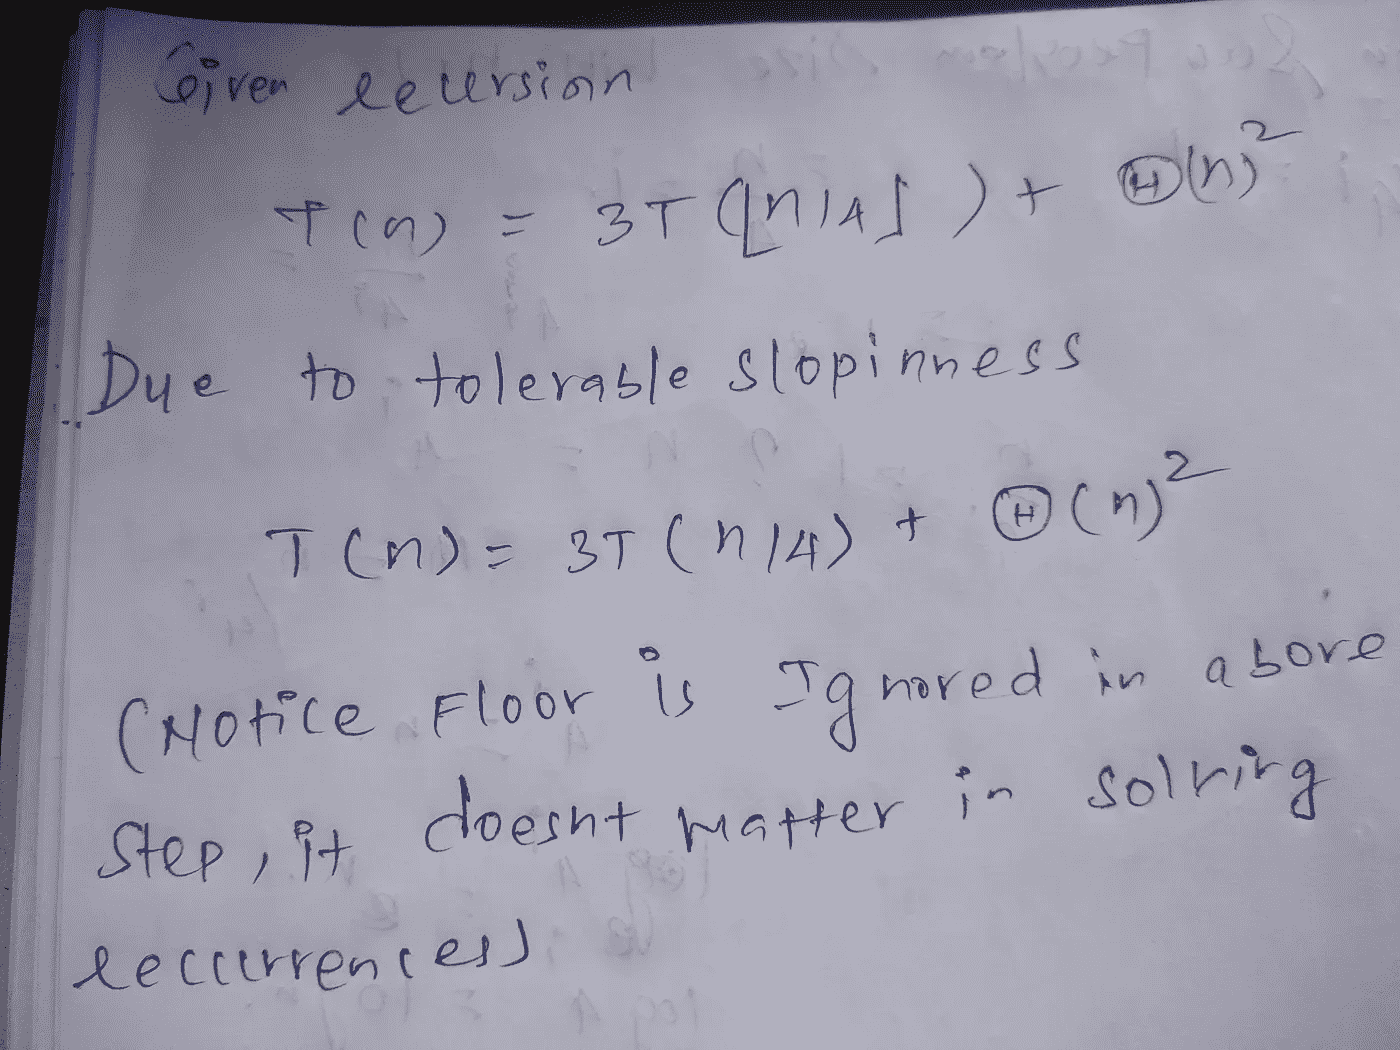 Given recursion
T(n) = 3T(⌊n/4⌋) + Θ(n)²
Due to tolerable slopinness
T(n) = 3T(n/4) + Θ(n)²
(Notice Floor is Ignored in above
Step, it doesnt matter in solving
reccurrences)